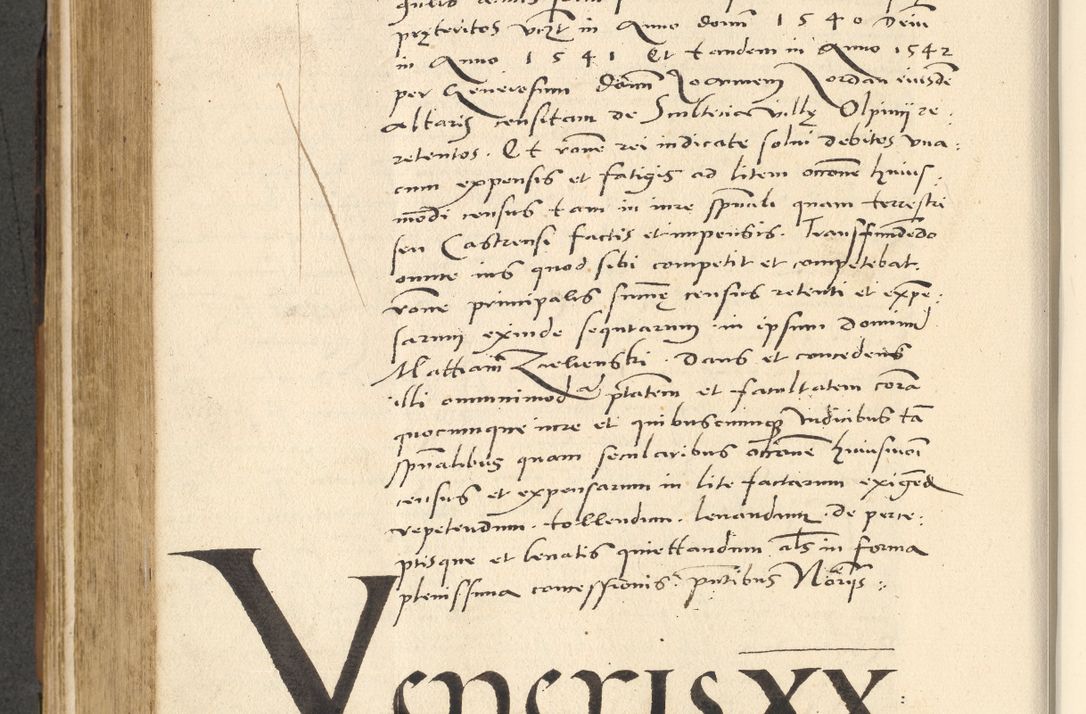 pręteritos vizt in Anno domi 1540 Deiñ
in Anno 1541 Et tandem in Anno 1542
per Generosum domi Joannem Jordan eiusdē
altaris censitam de villę Olpinij re:
retentos. Et rone rei indicate solui debitos vna:
cum expensis et fatigis ad litem occone huius:
modi census tam in iure spuali quam terrestri
seu Castrensi factis et impensis. Transfundēdo
omne ius quod sibi competit et competebat,
rone principalis summę census retenti et expē:
sarum exinde sequtarum in ipsum Dominū
Mathiam Zielienski. Dans et concedens
illi omnimodā ptatem et facultatem corā
quocumque iure et quibuscumque Iudicibus tā
spualibus quam secularibus occone huiusmoi
census et expensarum in lite factarum exigēd
repetendum. tollendum. levandum. de perce:
ptisque et levatis quiettandum als in forma
plenissima concessionis. pntibus Norijs:
Veneris XX: